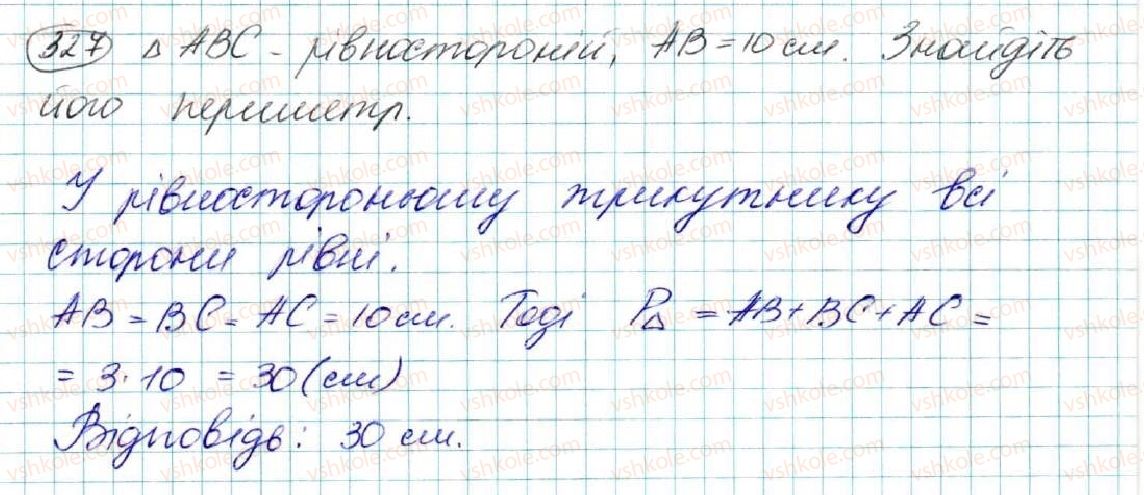 327 △ ABC - рівносторонній, AB = 10 см. Знайдіть
його периметр.
У рівносторонньому трикутнику всі
сторони рівні.
AB = BC = AC = 10 см. Тоді P△ = AB + BC + AC =
= 3 · 10 = 30 (см)
Відповідь: 30 см.